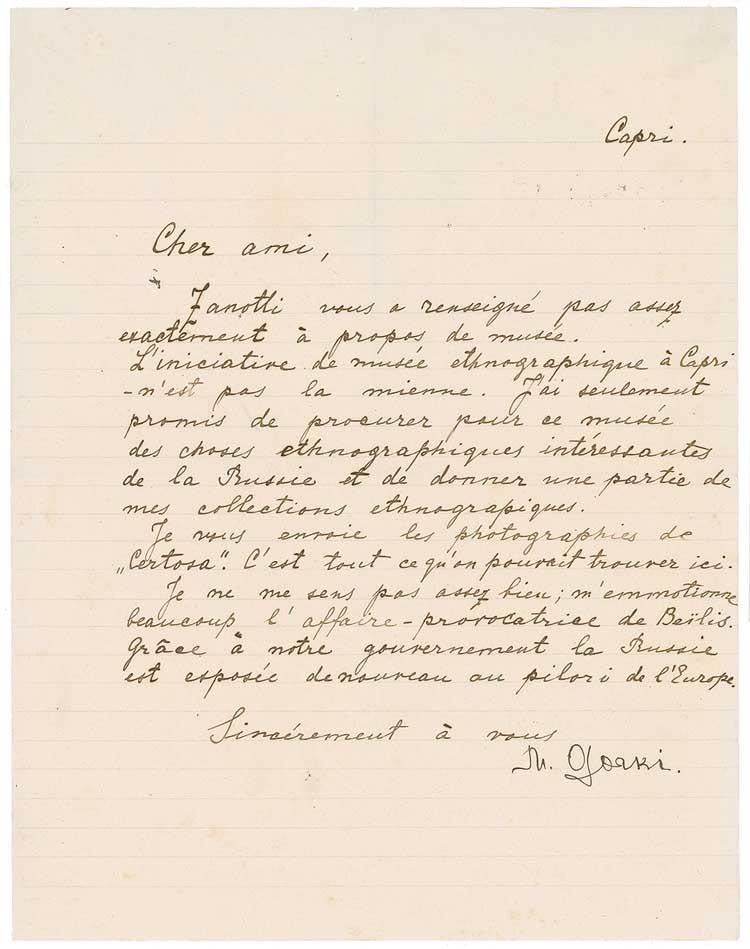 Capri.
Cher ami,
Zanotti vous a renseigné pas assez
exactement à propos de musée.
L'iniciative de musée ethnographique à Capri
- n'est pas la mienne. J'ai seulement
promis de procurer pour ce musée
des choses ethnographiques intéressantes
de la Russie et de donner une partie de
mes collections ethnograpiques.
Je vous envoie les photographies de
„Certosa". C'est tout ce qu'on pouvait trouver ici.
Je ne me sens pas assez bien; m'emmotionne
beaucoup l'affaire-provocatrice de Beïlis.
Grâce à notre gouvernement la Russie
est esposée denouveau au pilori de l'Europe.
Sincérement à vous
M. Gorki.